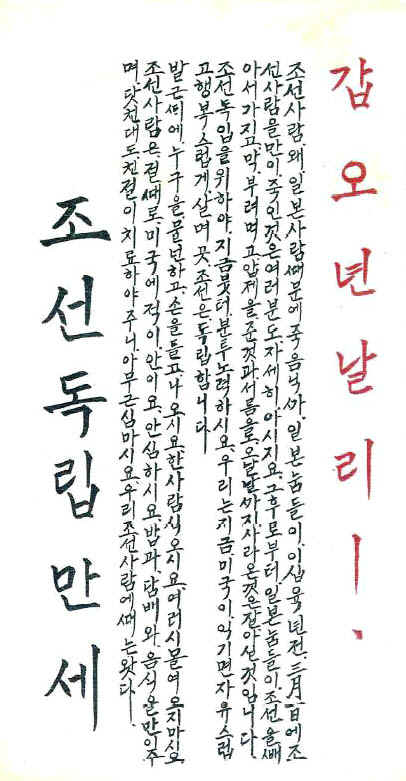 갑오년날리—、
조선사람、왜、일본사람때문에죽음닛까、일본놈들이、이십육년전、三月一日에조
선사람을만이、죽인것은여러분도자세히아시지요、그후로부터일본놈들이、조선을빼
아서가지고、막、부려먹고、압제을준것과서름을오날날까지사라온것은잘아실것임니다
조선독입을위하야、지금붓터、분투노력하시요、우리는지금미국이、익기면자유스럽
고행복스럽게、살며、곳、조선은、독립합니다—
발근때에、누구을물넌하고、손을들고나오시요한사람식오시요、여러시몰여오지마십요
조선사람은、절때로、미국에적이、안이요、안심하시요、밥과、담배와、음식을만이주
며、닷친대도、친절이치료하야주니、아무근심마시요、우리조선사람에때는왓다—
조선독립만세